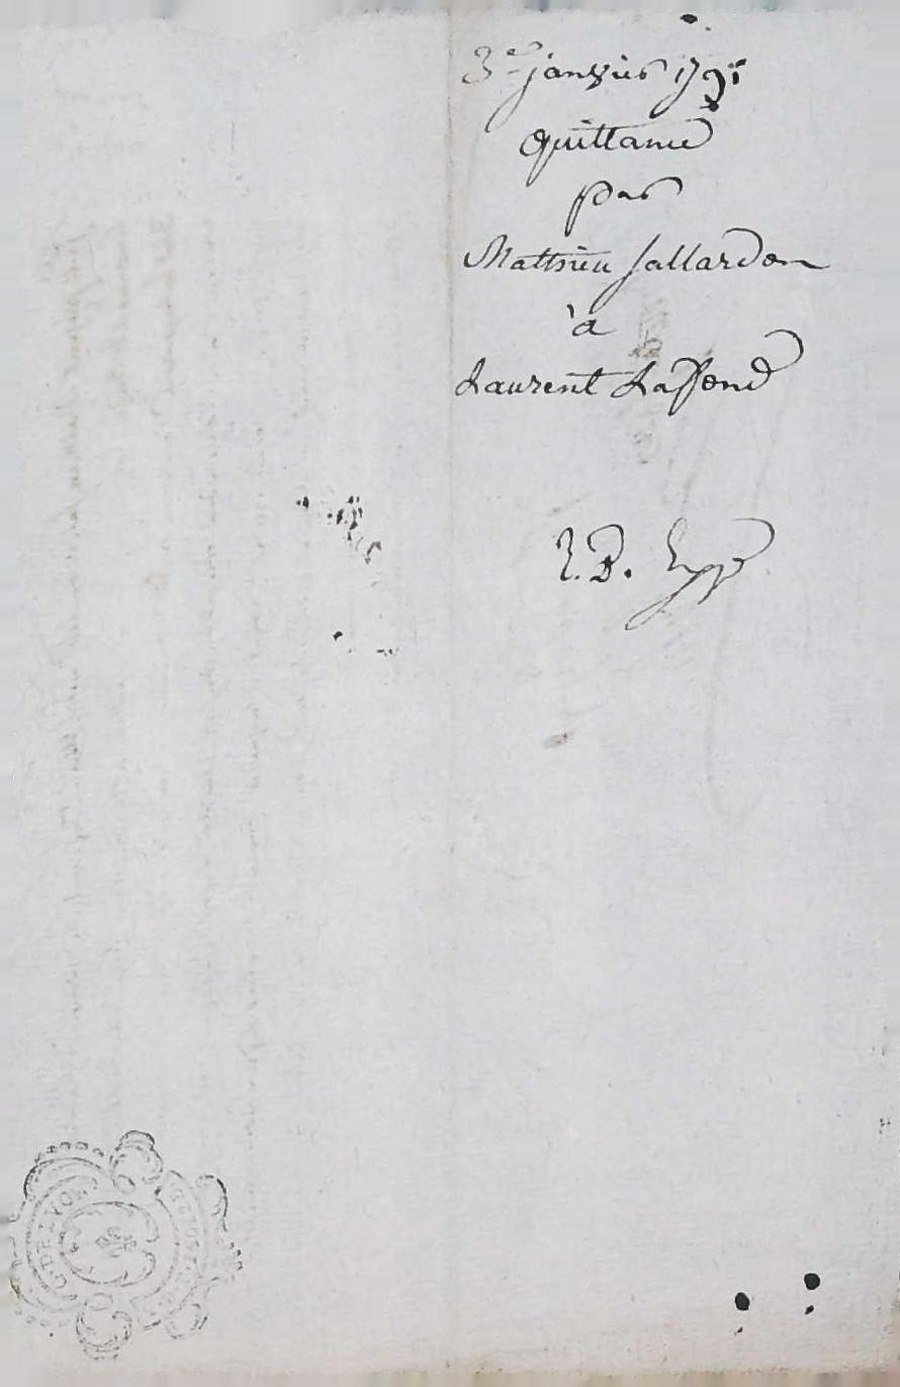 3e janvier 1791
Quittance
par
Mathieu Jallardon
à
Laurent Laffond
Expp
G. DE LYON